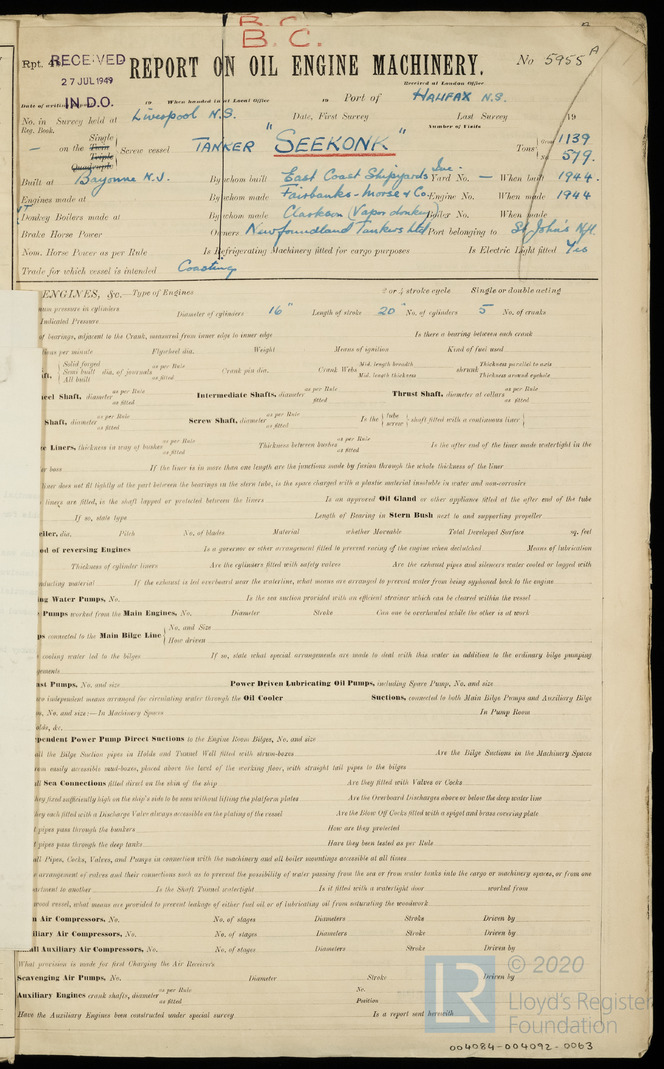 B.C.
B.C.
Rpt. 4
RECEIVED
27 JUL 1949
IN D.O.
REPORT ON OIL ENGINE MACHINERY.
No 5955 A
Received at London Office
Date of writing 19 When handed in at Local Office 19 Port of HALIFAX N.S.
No. in Survey held at Liverpool N.S. Date, First Survey Last Survey 19
Reg. Book. Number of Visits
— on the Single Twin Triple Quadruple Screw vessel TANKER "SEEKONK" Tons Gross 1139 Net 579.
Built at Bayonne N.J. By whom built East Coast Shipyards Inc. Yard No. — When built 1944.
Engines made at By whom made Fairbanks-Morse & Co. Engine No. When made 1944
Donkey Boilers made at By whom made Clarkson (Vapor donkey) Boiler No. When made
Brake Horse Power Owners Newfoundland Tankers Ltd Port belonging to St John's Nfl.
Nom. Horse Power as per Rule Is Refrigerating Machinery fitted for cargo purposes Is Electric Light fitted Yes
Trade for which vessel is intended Coasting
ENGINES, &c.—Type of Engines 2 or 4 stroke cycle Single or double acting
um pressure in cylinders Diameter of cylinders 16" Length of stroke 20" No. of cylinders 5 No. of cranks
Indicated Pressure
of bearings, adjacent to the Crank, measured from inner edge to inner edge Is there a bearing between each crank
tions per minute Flywheel dia. Weight Means of ignition Kind of fuel used
aft, Solid forged Semi built All built dia. of journals as per Rule as fitted Crank pin dia. Crank Webs Mid. length breadth Mid. length thickness shrunk Thickness parallel to axis Thickness around eyehole
eel Shaft, diameter as per Rule as fitted Intermediate Shafts, diameter as per Rule fitted Thrust Shaft, diameter at collars as per Rule as fitted
Shaft, diameter as per Rule as fitted Screw Shaft, diameter as per Rule as fitted Is the tube screw shaft fitted with a continuous liner
e Liners, thickness in way of bushes as per Rule as fitted Thickness between bushes as per Rule as fitted Is the after end of the liner made watertight in the
er boss If the liner is in more than one length are the junctions made by fusion through the whole thickness of the liner
liner does not fit tightly at the part between the bearings in the stern tube, is the space charged with a plastic material insoluble in water and non-corrosive
liners are fitted, is the shaft lapped or protected between the liners Is an approved Oil Gland or other appliance fitted at the after end of the tube
If so, state type Length of Bearing in Stern Bush next to and supporting propeller
eller, dia. Pitch No. of blades Material whether Moveable Total Developed Surface sq. feet
od of reversing Engines Is a governor or other arrangement fitted to prevent racing of the engine when declutched Means of lubrication
Thickness of cylinder liners Are the cylinders fitted with safety valves Are the exhaust pipes and silencers water cooled or lagged with
nducting material If the exhaust is led overboard near the waterline, what means are arranged to prevent water from being syphoned back to the engine
ing Water Pumps, No. Is the sea suction provided with an efficient strainer which can be cleared within the vessel
Pumps worked from the Main Engines, No. Diameter Stroke Can one be overhauled while the other is at work
ps connected to the Main Bilge Line No. and Size How driven
cooling water led to the bilges If so, state what special arrangements are made to deal with this water in addition to the ordinary bilge pumping
gements
ast Pumps, No. and size Power Driven Lubricating Oil Pumps, including Spare Pump, No. and size
wo independent means arranged for circulating water through the Oil Cooler Suctions, connected to both Main Bilge Pumps and Auxiliary Bilge
s, No. and size:—In Machinery Spaces In Pump Room
olds, &c.
ependent Power Pump Direct Suctions to the Engine Room Bilges, No. and size
all the Bilge Suction pipes in Holds and Tunnel Well fitted with strum-boxes Are the Bilge Suctions in the Machinery Spaces
rom easily accessible mud-boxes, placed above the level of the working floor, with straight tail pipes to the bilges
ll Sea Connections fitted direct on the skin of the ship Are they fitted with Valves or Cocks
they fixed sufficiently high on the ship's side to be seen without lifting the platform plates Are the Overboard Discharges above or below the deep water line
they each fitted with a Discharge Valve always accessible on the plating of the vessel Are the Blow Off Cocks fitted with a spigot and brass covering plate
t pipes pass through the bunkers How are they protected
t pipes pass through the deep tanks Have they been tested as per Rule
all Pipes, Cocks, Valves, and Pumps in connection with the machinery and all boiler mountings accessible at all times
e arrangement of valves and their connections such as to prevent the possibility of water passing from the sea or from water tanks into the cargo or machinery spaces, or from one
artment to another Is the Shaft Tunnel watertight Is it fitted with a watertight door worked from
wood vessel, what means are provided to prevent leakage of either fuel oil or of lubricating oil from saturating the woodwork
n Air Compressors, No. No. of stages Diameters Stroke Driven by
iliary Air Compressors, No. No. of stages Diameters Stroke Driven by
all Auxiliary Air Compressors, No. No. of stages Diameters Stroke Driven by
What provision is made for first Charging the Air Receivers
Scavenging Air Pumps, No. Diameter Stroke Driven by
Auxiliary Engines crank shafts, diameter as per Rule as fitted No. Position
Have the Auxiliary Engines been constructed under special survey Is a report sent herewith
LR
© 2020
Lloyd's Register
Foundation
004084-004092-0063